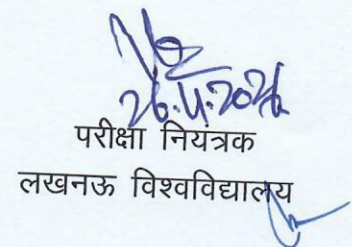 26.4.2026
परीक्षा नियंत्रक
लखनऊ विश्वविद्यालय